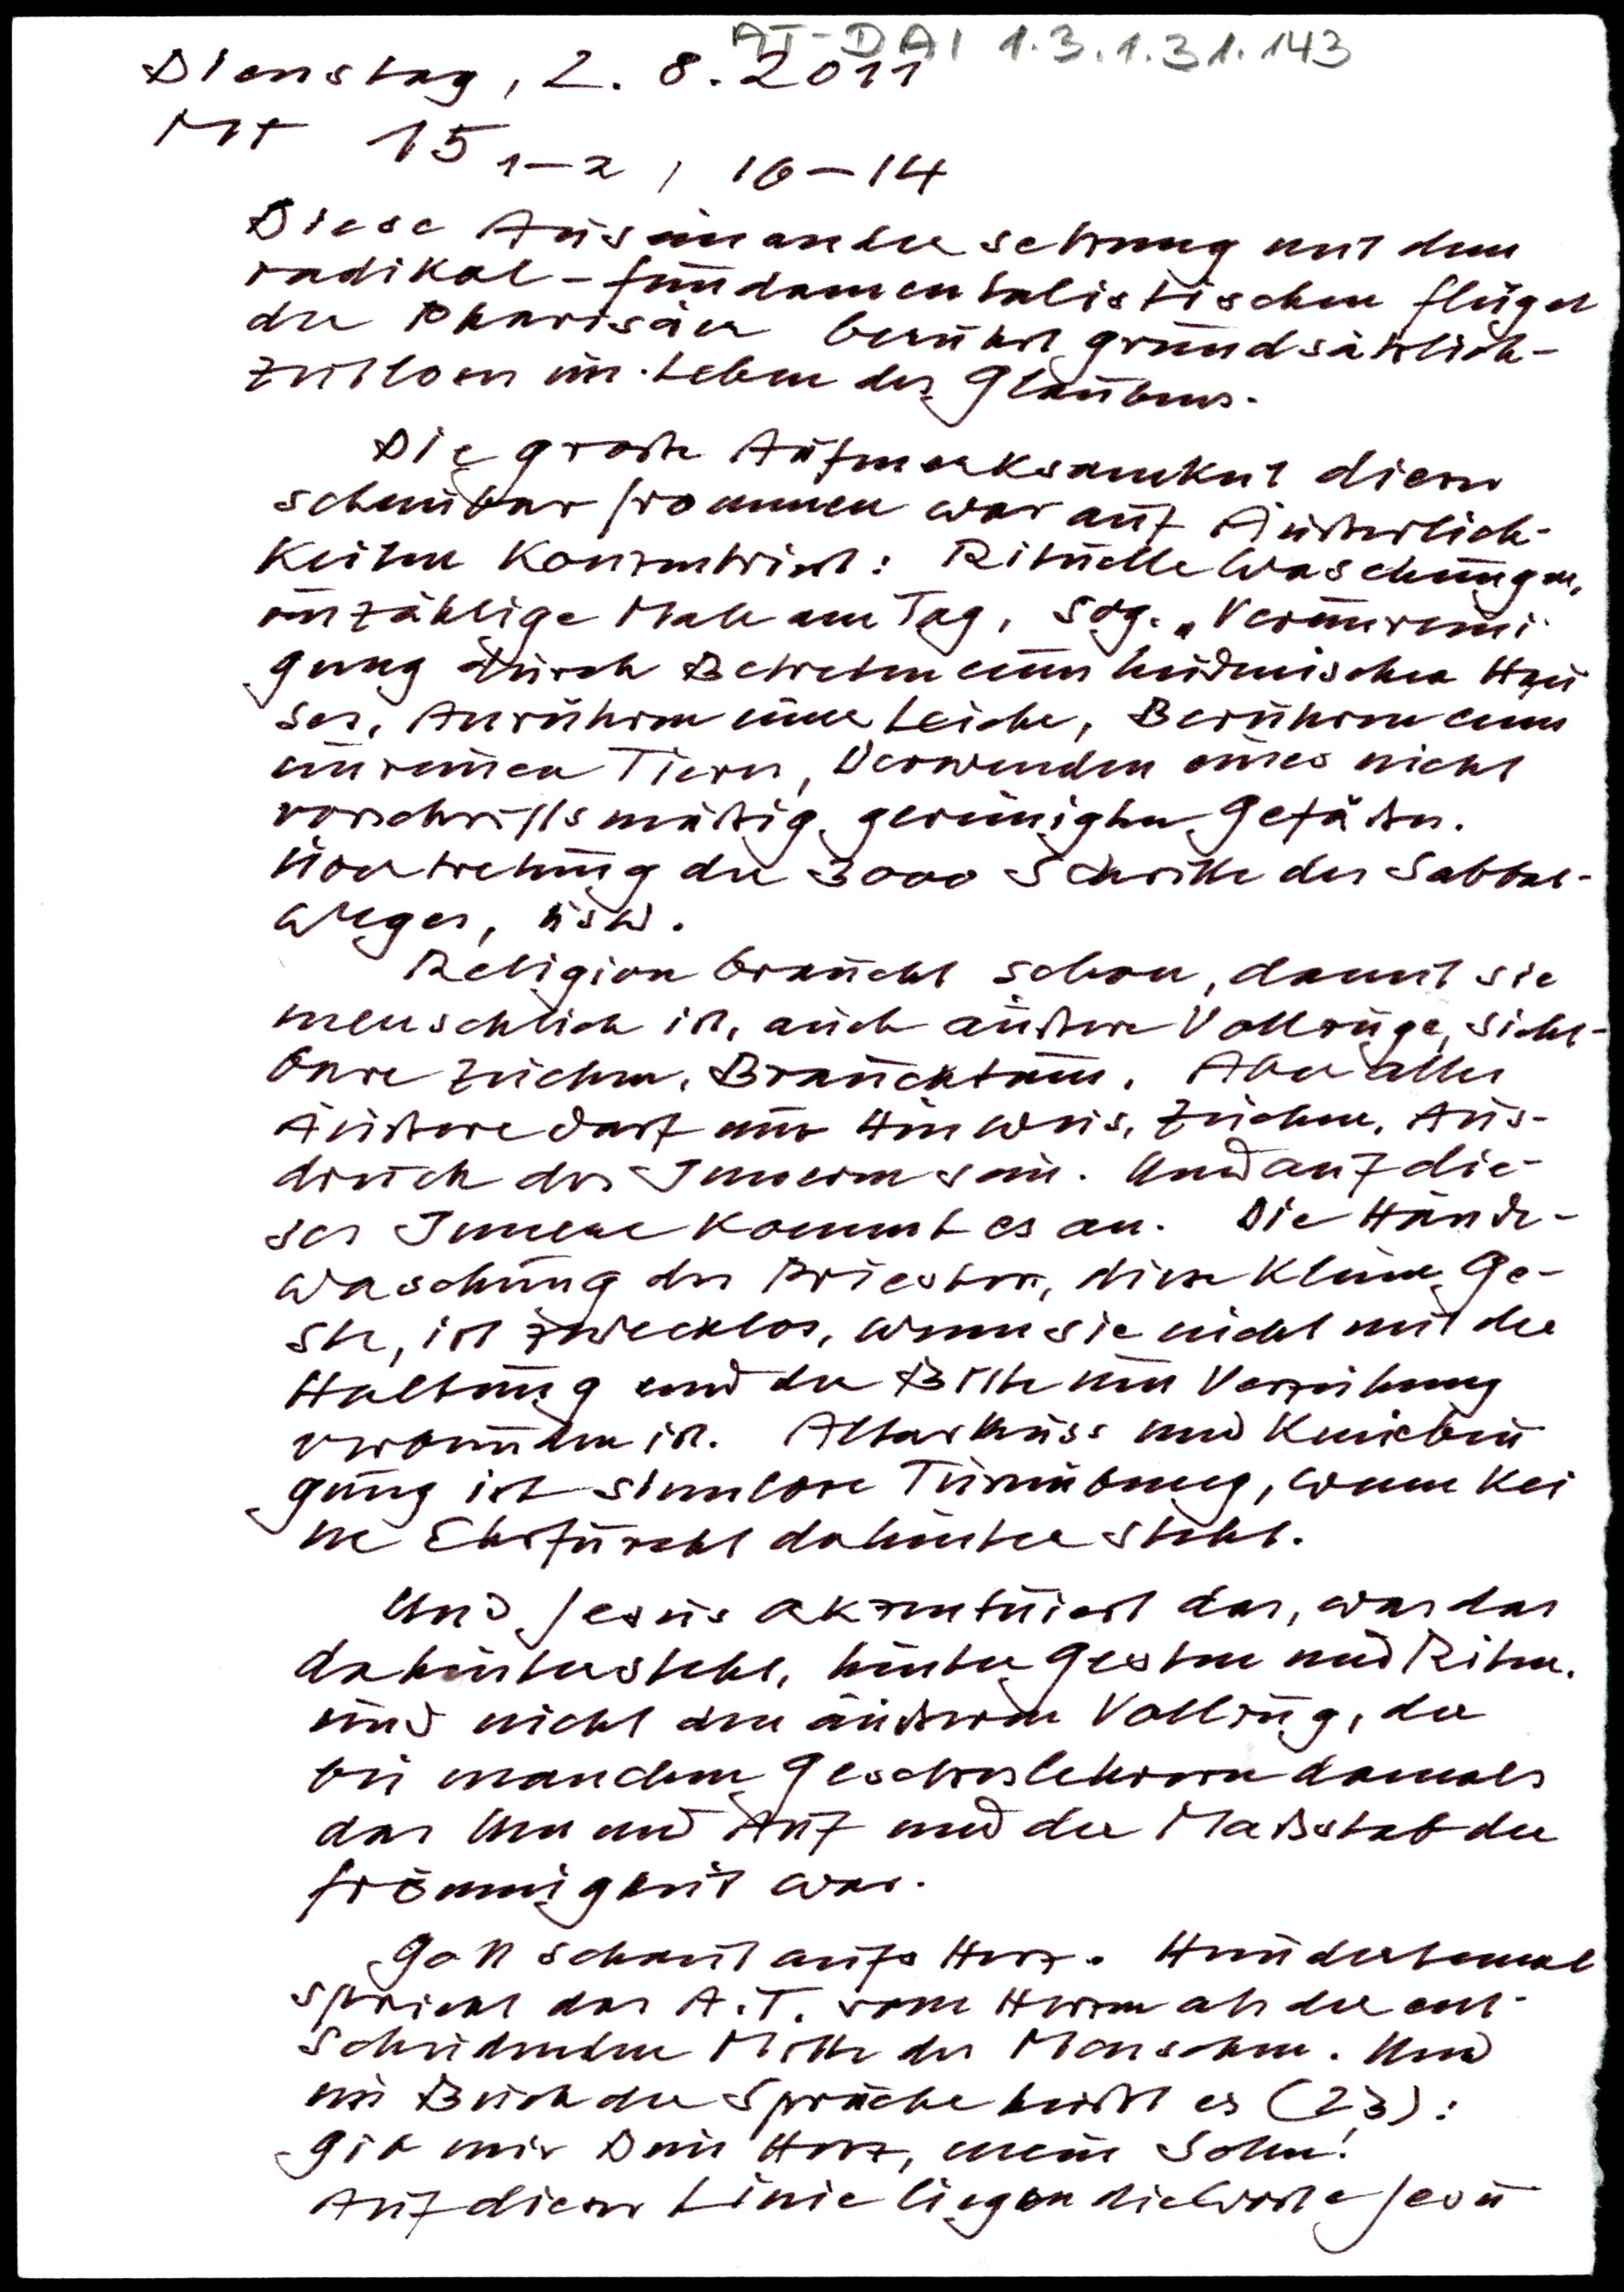 AT-DAI 1.3.1.31.143
Dienstag, 2. 8. 2011
Mt 15 1–2, 10–14
Diese Auseinandersetzung mit dem
radikal-fundamentalistischen Flügel
der Pharisäer berührt grundsätzlich-
zeitloses im Leben des Glaubens.
Die große Aufmerksamkeit dieser
scheinbar frommen war auf Äußerlich-
keiten konzentriert: Rituelle Waschungen,
unzählige Male am Tag, sog. „Verunreini
gung durch Betreten eines heidnischen Hau
ses, Anrühren einer Leiche, Berühren eines
unreinen Tieres, Verwenden eines nicht
vorschriftsmäßig gereinigten Gefäßes.
Übertretung der 3000 Schritte des Sabbat-
weges, usw.
Religion braucht schon, damit sie
menschlich ist, auch äußere Vollzüge, sicht-
bare Zeichen, Brauchtum. Aber alles
Äußere darf nur Hinweis, Zeichen, Aus-
druck des Inneren sein. Und auf die-
ses Innere kommt es an. Die Hände-
waschung des Priesters, diese kleine Ge-
ste, ist zwecklos, wenn sie nicht mit der
Haltung und der Bitte um Verzeihung
verbunden ist. Altarkuss und Kniebeu
gung ist sinnlose Turnübung, wenn kei
ne Ehrfurcht dahinter steht.
Und Jesus akzentuiert das, was das
dahintersteht, hinter Gesten und Riten.
und nicht den äußeren Vollzug, der
bei manchen Gesetzeslehrern damals
das Um und Auf und der Maßstab der
Frömmigkeit war.
Gott schaut aufs Herz. Hundertemal
spricht das A.T. vom Herzen als der ent-
scheidenden Mitte des Menschen. Und
im Buch der Sprüche heißt es (23):
Gib mir Dein Herz, mein Sohn!
Auf dieser Linie liegen die Worte Jesu